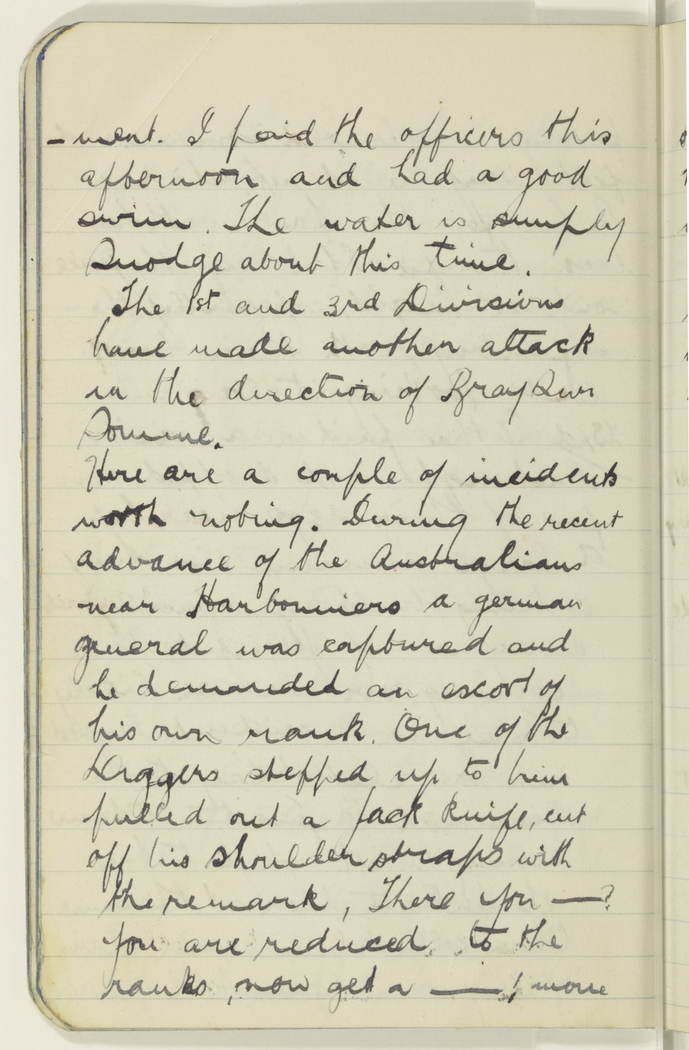 -ment. I paid the officers this
afternoon and had a good
swim. The water is simply
Snodge about this time.
The 1st and 3rd Divisions
have made another attack
in the direction of Bray Sur
Somme.
Here are a couple of incidents
worth noting. During the recent
advance of the Australians
near Harbonniers a german
general was captured and
he demanded an escort of
his own rank. One of the
Diggers stepped up to him
pulled out a Jack Knife, cut
off his shoulder straps with
the remark, There you —?
you are reduced to the
ranks, now get a —! move